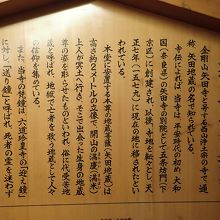 金剛山矢田寺と号する西山浄土宗の寺で、通
称、矢田地蔵の名で知られている。
寺伝によれば、当寺は、平安時代の初め、大和
国（奈良県）の矢田寺の別院として五条坊門（下
京区）に創建され、以後、寺地を転々とし、天
正七年（一五七九）に現在の地に移されたと
いわれている。
本堂に安置する本尊の地蔵菩薩（矢田地蔵）は
高さ約２メートルの立像で、開山の満慶（満米）
上人が冥土へ行き、そこで出会った生身の地蔵
尊の姿を彫らせたものといわれ、俗に代受苦地
蔵と呼ばれ、地獄で亡者を救う地蔵として人々
の信仰を集めている。
また、当寺の梵鐘は、六道珍皇寺の「迎え鐘」
に対し、「送り鐘」と呼ばれ、死者の霊を迷わず